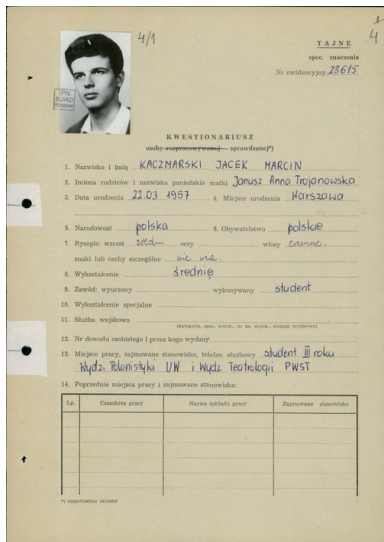 4/1
1
4
TAJNE
spec. znaczenia
Nr ewidencyjny 23615
KWESTIONARIUSZ
osoby rozpracowywanej — sprawdzanej*)
1. Nazwisko i imię KACZMARSKI JACEK MARCIN
2. Imiona rodziców i nazwisko panieńskie matki Janusz Anna Trojanowska
3. Data urodzenia 22.03 1957 4. Miejsce urodzenia Warszawa
5. Narodowość polska 6. Obywatelstwo polskie
7. Rysopis: wzrost średni oczy włosy czarne
znaki lub cechy szczególne nie ma
8. Wykształcenie średnie
9. Zawód: wyuczony wykonywany student
10. Wykształcenie specjalne
11. Służba wojskowa
(kategoria, spec. wojsk., nr ks. wojsk., stopień wojskowy)
12. Nr dowodu osobistego i przez kogo wydany
13. Miejsce pracy, zajmowane stanowisko, telefon służbowy student III roku
Wydz. Polonistyki UW i Wydz Teatrologii PWST
14. Poprzednie miejsca pracy i zajmowane stanowiska:
Lp. Czasokres pracy Nazwa zakładu pracy Zajmowane stanowisko
*) niepotrzebne skreślić